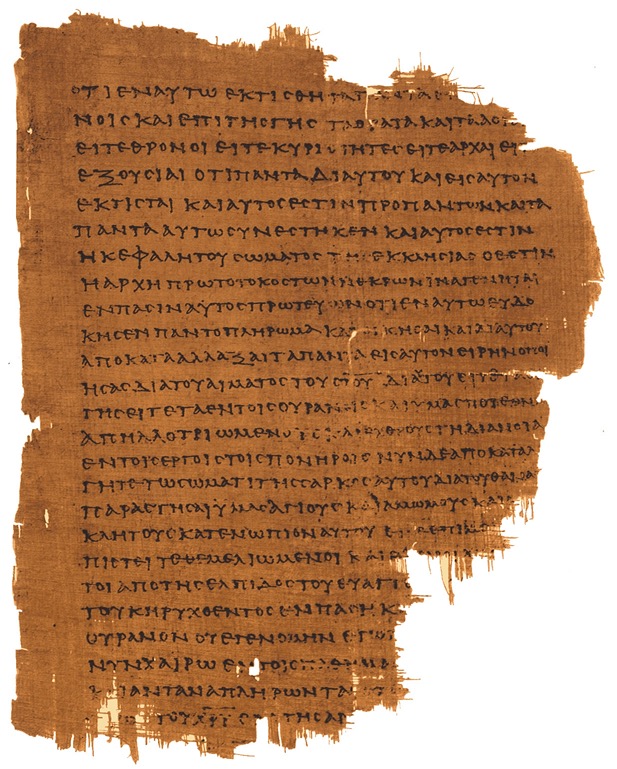 ΟΤΙΕΝΑΥΤΩΕΚΤΙϹΘΗΤΑΠ
ΝΟΙϹΚΑΙΕΠΙΤΗϹΓΗϹΤΑΟΡΑΤΑΚΑΙΤΑΑΟ
ΕΙΤΕΘΡΟΝΟΙΕΙΤΕΚΥΡΙΟΤΗΤΕϹΕΙΤΕΑΡΧΑΙΕΙ
ΕΞΟΥϹΙΑΙΟΤΙΠΑΝΤΑΔΙΑΥΤΟΥΚΑΙΕΙϹΑΥΤΟΝ
ΕΚΤΙϹΤΑΙΚΑΙΑΥΤΟϹΕϹΤΙΝΠΡΟΠΑΝΤΩΝΚΑΙΤΑ
ΠΑΝΤΑΑΥΤΩϹΥΝΕϹΤΗΚΕΝΚΑΙΑΥΤΟϹΕϹΤΙΝ
ΗΚΕΦΑΛΗΤΟΥϹΩΜΑΤΟϹΤΗϹΕΚΚΛΗϹΙΑϹΟΕϹΤΙΝ
ΗΑΡΧΗΠΡΩΤΟΤΟΚΟϹΤΩΝΝΕΚΡΩΝΙΝΑΓΕΝΗΤΑΙ
ΕΝΠΑϹΙΝΑΥΤΟϹΠΡΩΤΕΥΩΝΟΤΙΕΝΑΥΤΩΕΥΔΟ
ΚΗϹΕΝΠΑΝΤΟΠΛΗΡΩΜΑΚΑΤΟΙΚΗϹΑΙΚΑΙΔΙΑΥΤΟΥ
ΑΠΟΚΑΤΑΛΛΑΞΑΙΤΑΠΑΝΤΑΕΙϹΑΥΤΟΝΕΙΡΗΝΟΠΟΙ
ΗϹΑϹΔΙΑΤΟΥΑΙΜΑΤΟϹΤΟΥϹΤΟΥΔΙΑΥΤΟΥΕΙΤΕ
ΤΗϹΕΙΤΕΤΑΕΝΤΟΙϹΟΥΡΑΝΟΙϹΚΑΙΥΜΑϹΠΟΤΕΟΝ
ΑΠΗΛΛΟΤΡΙΩΜΕΝΟΥϹΚΑΙΕΧΘΡΟΥϹΤΗΔΙΑΝΟΙΑ
ΕΝΤΟΙϹΕΡΓΟΙϹΤΟΙϹΠΟΝΗΡΟΙϹΝΥΝΔΕΑΠΟΚΑΤΑΛ
ΓΗΤΕΕΝΤΩϹΩΜΑΤΙΤΗϹϹΑΡΚΟϹΑΥΤΟΥΔΙΑΤΟΥΘΑΝΑ
ΠΑΡΑϹΤΗϹΑΙΥΜΑϹΑΓΙΟΥϹΚΑΙΑΜΩΜΟΥϹΚΑΙΑ
ΚΛΗΤΟΥϹΚΑΤΕΝΩΠΙΟΝΑΥΤΟΥΕΙ
ΠΙϹΤΕΙΤΕΘΕΜΕΛΙΩΜΕΝΟΙΚΑΙ
ΤΟΙΑΠΟΤΗϹΕΛΠΙΔΟϹΤΟΥΕΥΑΓΓΕ
ΤΟΥΚΗΡΥΧΘΕΝΤΟϹΕΝΠΑϹΗΚ
ΟΥΡΑΝΟΝΟΥΕΓΕΝΟΜΗΝΕΓΩ
ΝΥΝΧΑΙΡΩΕΝΤΟΙϹΠΑΘΗΜΑ
ΑΝΤΑΝΑΠΛΗΡΩΝΤΑ
ΤΟΥΧΡΥΕΝΤΗϹΑΡ